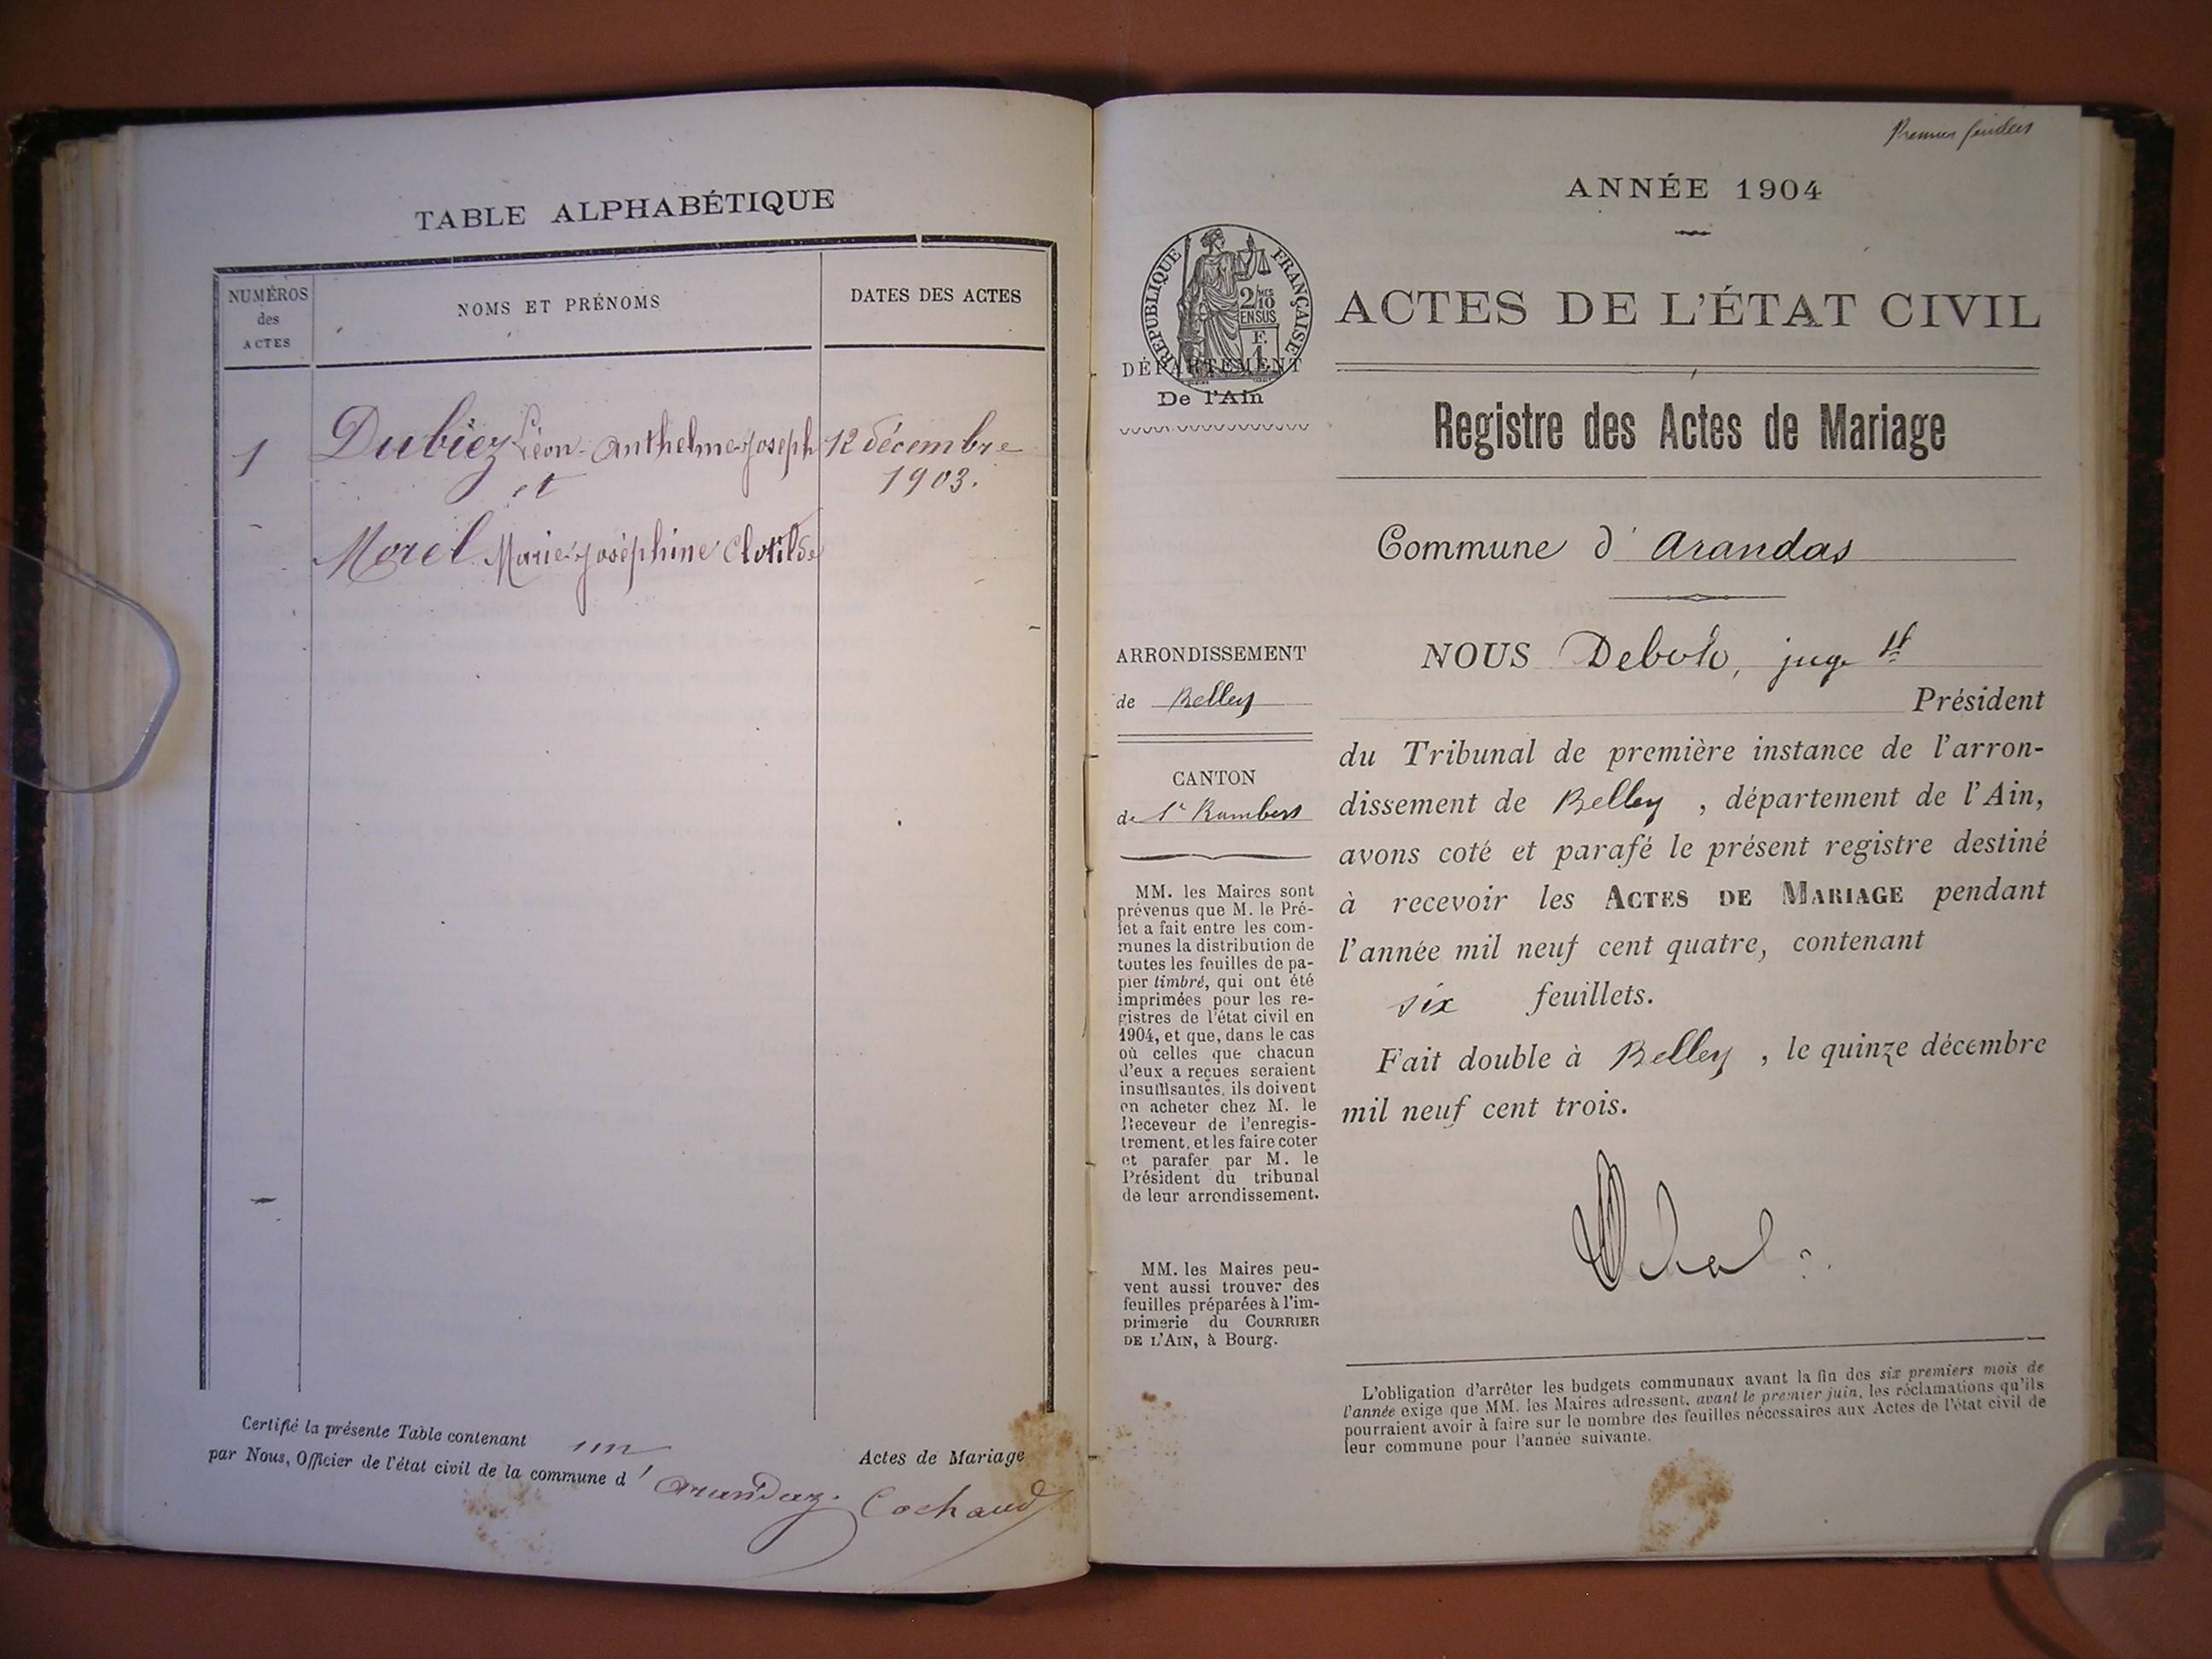 TABLE ALPHABÉTIQUE
NUMÉROS
des
ACTES
NOMS ET PRÉNOMS
DATES DES ACTES
1 Dubiez Léon-Anthelme-Joseph 12 décembre
et 1903.
Morel Marie-Joséphine Clotilde
Certifié la présente Table contenant un Actes de Mariage
par Nous, Officier de l'état civil de la commune d' Arandaz. Cochaud
Premier
ANNÉE 1904
RÉPUBLIQUE FRANÇAISE
2/10 MES
EN SUS
F.
1
DÉPARTEMENT
De l'Ain
ACTES DE L'ÉTAT CIVIL
Registre des Actes de Mariage
Commune d' Arandas
ARRONDISSEMENT
de Belley
CANTON
de St Rambert
MM. les Maires sont
prévenus que M. le Pré-
fet a fait entre les com-
munes la distribution de
toutes les feuilles de pa-
pier timbré, qui ont été
imprimées pour les re-
gistres de l'état civil en
1904, et que, dans le cas
où celles que chacun
d'eux a reçues seraient
insuffisantes, ils doivent
en acheter chez M. le
Receveur de l'enregis-
trement, et les faire coter
et parafer par M. le
Président du tribunal
de leur arrondissement.
MM. les Maires peu-
vent aussi trouver des
feuilles préparées à l'im-
primerie du COURRIER
DE L'AIN, à Bourg.
NOUS juge
Président
du Tribunal de première instance de l'arron-
dissement de Belley , département de l'Ain,
avons coté et parafé le présent registre destiné
à recevoir les ACTES DE MARIAGE pendant
l'année mil neuf cent quatre, contenant
six feuillets.
Fait double à Belley , le quinze décembre
mil neuf cent trois.
L'obligation d'arrêter les budgets communaux avant la fin des six premiers mois de
l'année exige que MM. les Maires adressent, avant le premier juin, les réclamations qu'ils
pourraient avoir à faire sur le nombre des feuilles nécessaires aux Actes de l'état civil de
leur commune pour l'année suivante.